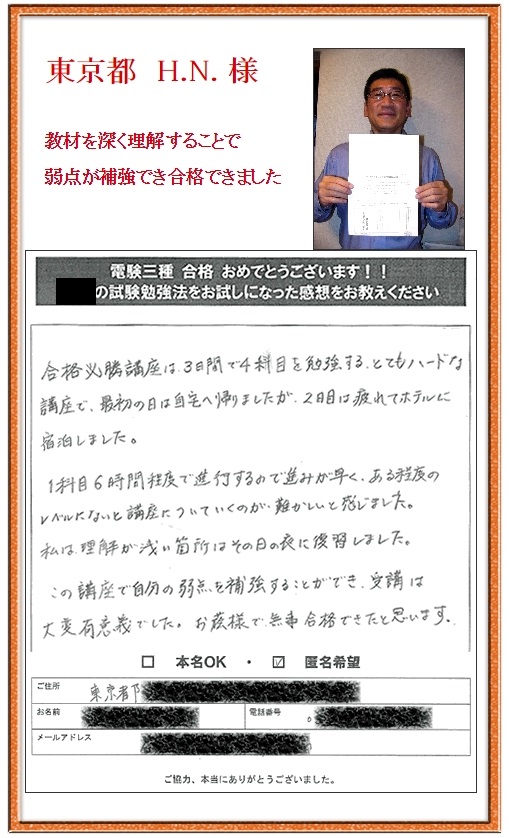 東京都 H.N. 様
教材を深く理解することで
弱点が補強でき合格できました
電験三種 合格 おめでとうございます！！
の試験勉強法をお試しになった感想をお教えください
合格必勝講座は、3日間で4科目を勉強する、とてもハードな
講座で、最初の日は自宅へ帰りましたが、2日目は疲れてホテルに
宿泊しました。
1科目6時間程度で進行するので進みが早く、ある程度の
レベルにないと講座についていくのが、難かしいと感じました。
私は、理解が浅い箇所はその日の夜に復習しました。
この講座で自分の弱点を補強することができ、受講は
大変有意義でした。お蔭様で、無事合格できたと思います。
□ 本名OK ・ ☑ 匿名希望
ご住所 東京都
お名前 電話番号 0
メールアドレス
ご協力、本当にありがとうございました。